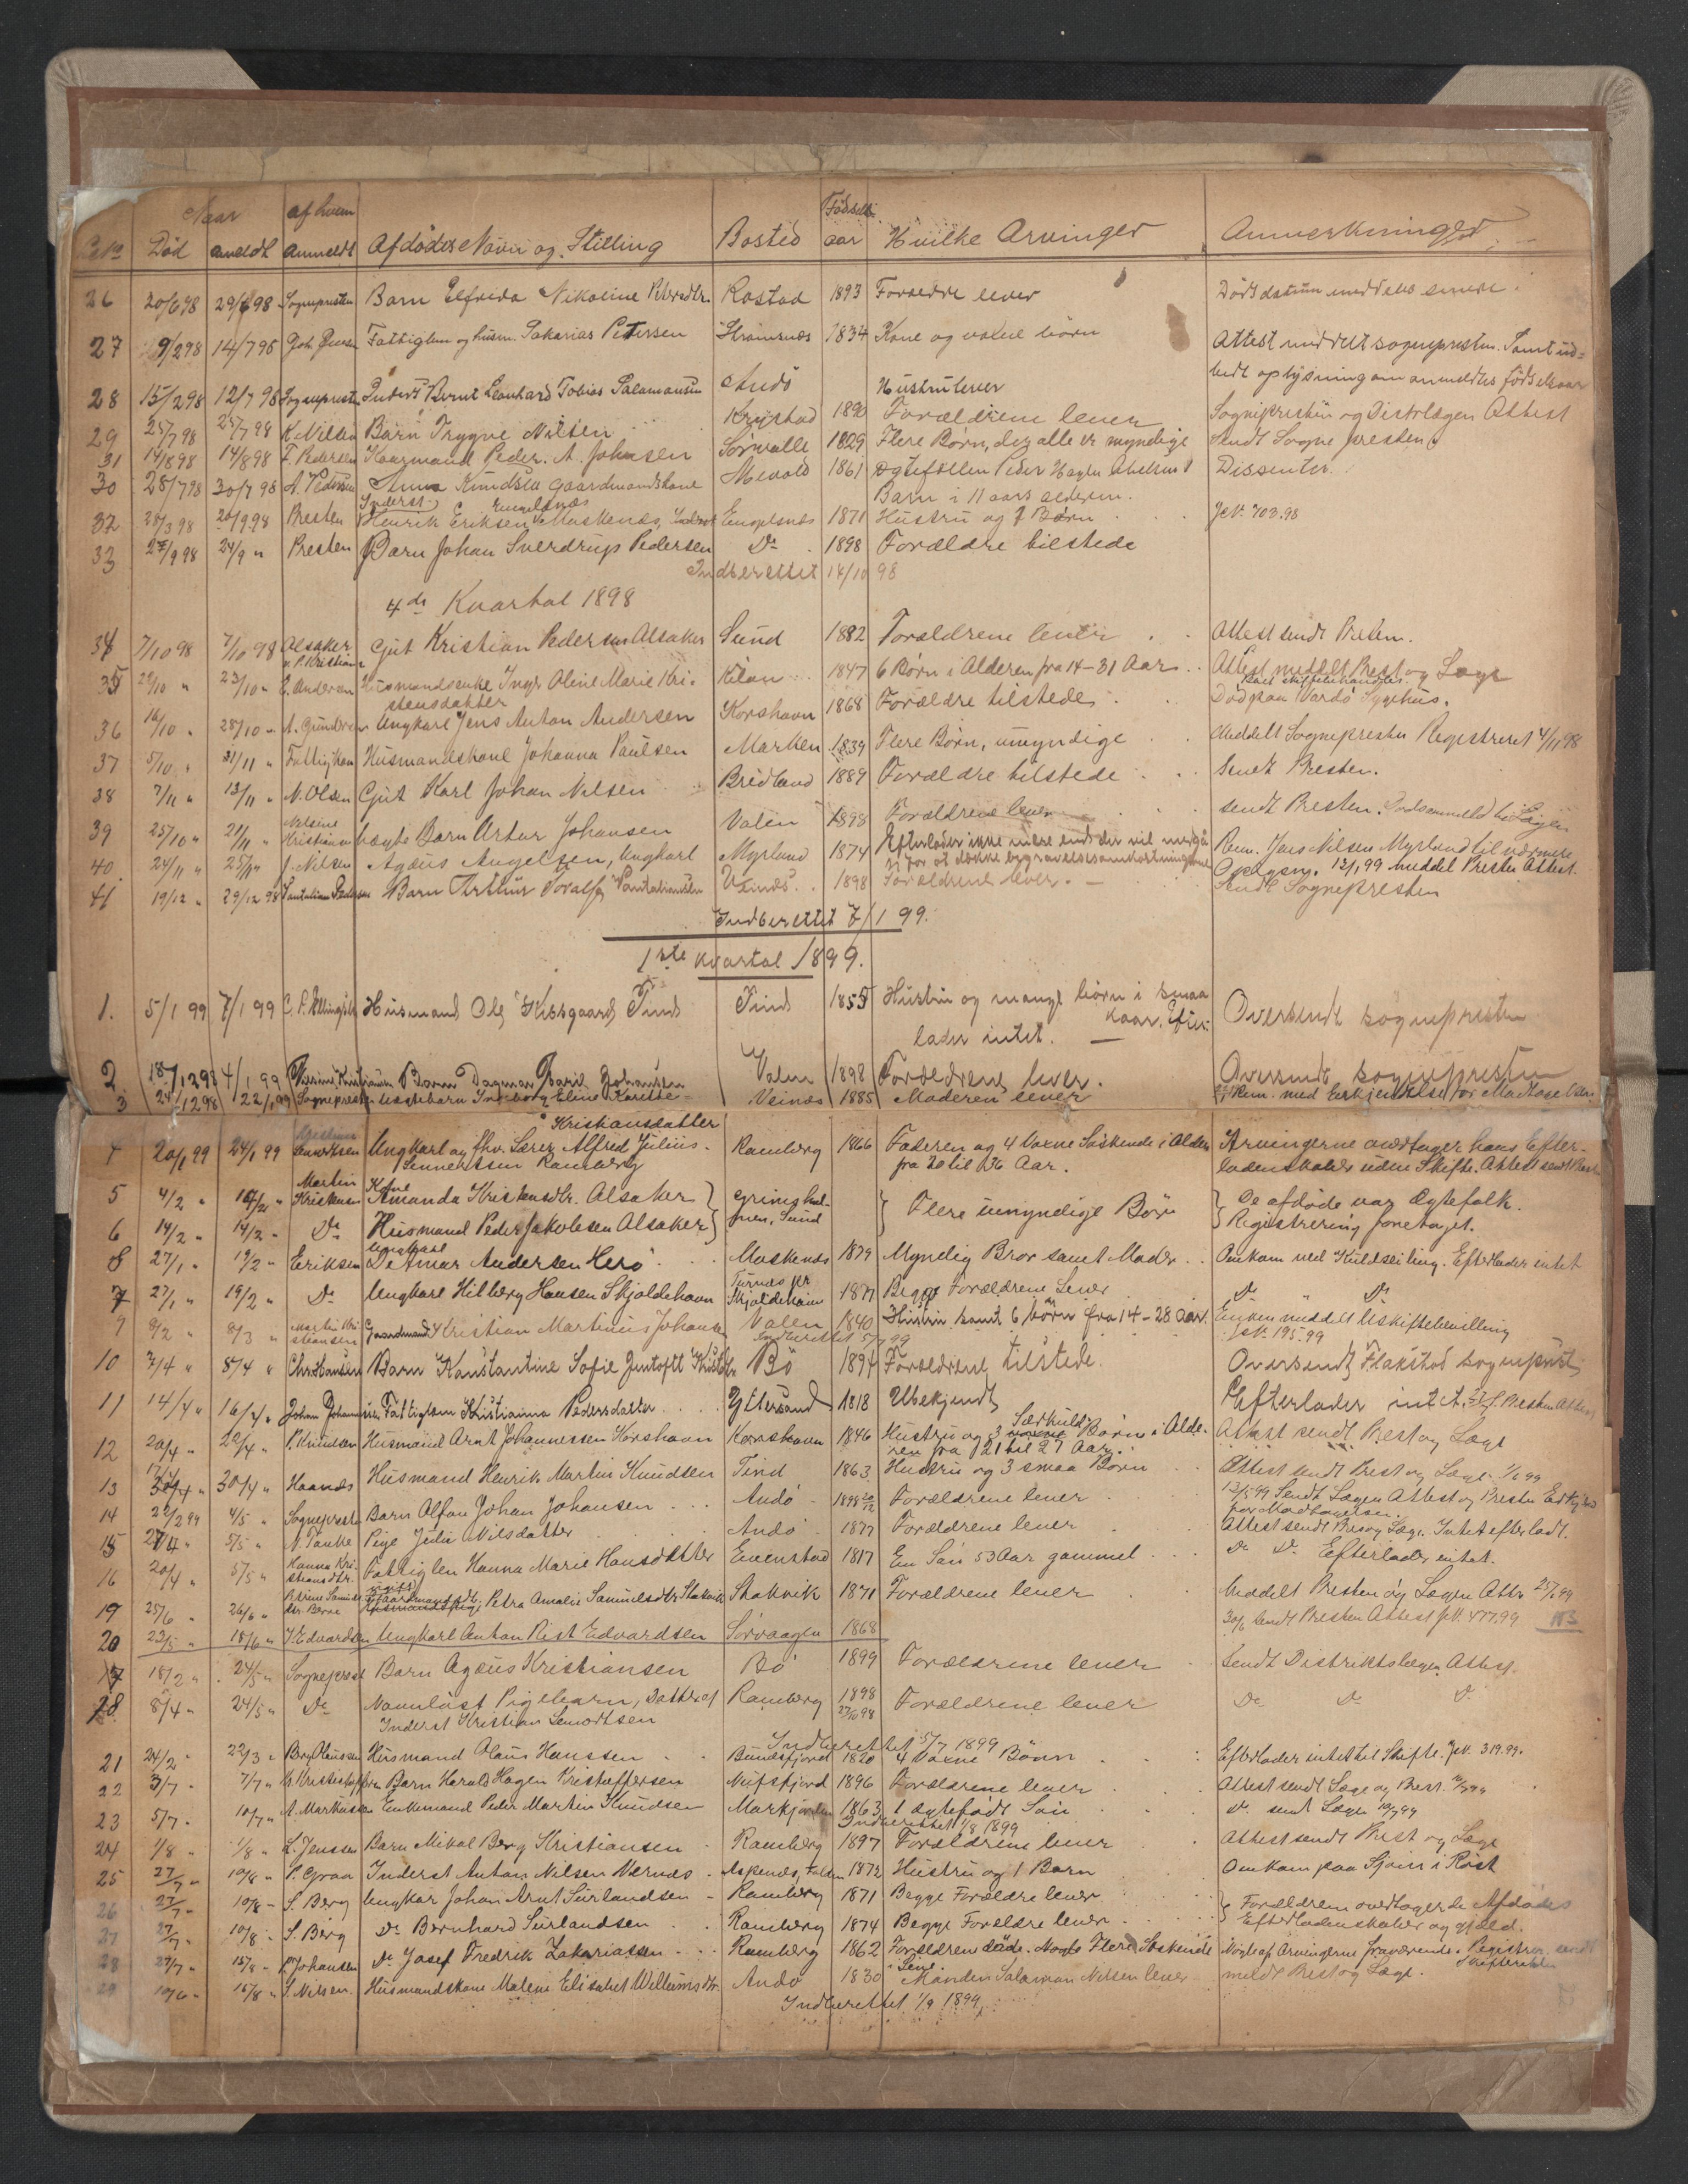 Naar af hvem Fødsels-
Død anmeldt Anmeldt Afdødes Navn og Stilling Bosted aar Hvilke Arvinger Anmerkninger
26 20/6 98 29/6 98 Sognepresten Barn Elfrida Nikoline Pedersdtr. Rostad 1893 Forældre lever Dødsdatum meddeles senere.
27 9/2 98 14/7 98 Joh. Fattiglem og husm. Sakarias Petersen Strømsnes 1834 Kone og voksne børn Attest meddelt sognepresten. Samt ud=
bedt oplysning om anmeldtes fødselsaar
28 15/2 98 12/7 98 Sognepresten Inderst Bernt Leonhard Tobias Salamonsen Andö Hustru lever Sognepresten og Distrlægen Attest
29 25/7 98 25/7 98 K. Nilsen Barn Trygve Nilsen Krystad 1890 Forældrene lever Sendt Sognepresten
31 14/8 98 14/8 98 P. Pedersen Kaarmand Peder. A. Johnsen Sörvalle 1829 Flere Børn, der alle er myndige Dissenter.
30 28/7 98 30/7 98 A. Pedersen Anna Knudsen Gaardmandskone Mevold 1861 Ægtefællen Peder Hagen Abelsen 1
Barn i 11 aars alderen.
Inderst Engelsnæs
32 28/3 98 20/9 98 Presten Henrik Eriksen Moskenæs, Engelsnæs 1871 Hustru og 7 Børn JN. 703.98
33 27/9 98 24/9 " Presten Barn Johan Sverdrup Pedersen Do 1898 Forældre tilstede
Indberettet 14/10 98
4de Kvartal 1898
34 7/10 98 7/10 98 Alsaker Gut Kristian Pedersen Alsaker Sund 1882 Forældrene lever Attest sendt Presten.
v. P. Kristian
35 22/10 " 23/10 " E. Andersen Husmandsenke Inger Oline Marie Kri- Kilan 1847 6 Børn i Alderen fra 14-31 Aar Attest meddelt Prest og Læge
stensdatter
36 16/10 " 28/10 " A. Gundersen Ungkarl Jens Anton Andersen Korshavn 1868 Forældre tilstede Død paa Vardö Sygehus.
37 5/10 " 31/11 " Fattigkom Husmandskone Johanna Paulsen Marken 1839 Flere Børn, umyndige Meddelt Sognepresten Registreret 4/11 98
38 7/11 " 13/11 " N. Olsen Gut Karl Johan Nilsen Bredland 1889 Forældre tilstede Sendt Presten.
39 25/10 " 21/11 " Nelsine Kristiansen uægte Barn Artur Johansen Valen 1898 Forældrene lever sendt Presten.
40 24/11 " 25/11 " J. Nilsen Agæus Angelsen, Ungkarl Myrland 1874 Efterlader ikke mere end der vil medgå Rem. Jens Nilsen Myrland til nærmere
for at dække begravelsesomkostningerne Opgjøn. 12/1 99 Meddel Presten Attest.
41 19/12 " 29/12 98 Barn Arthur Toralf Pantaliansen Vinnæs 1898 Forældrene lever. Sendt Sognepresten
Indberettet 7/1 99.
1ste kvartal 1899.
1. 5/1 99 7/1 99 C. P. Ellingsen Husmand Ole Kirsgaard Tind Tind 1855 Hustru og mange børn i smaa Oversendt sognepresten
kaar. Efter-
lader intet.
2 18/12 98 4/1 99 Barn Dagmar Johansen Valen 1898 Forældrene lever. Oversendt sognepresten
3 24/12 98 22/1 99 Sogneprest Ingeborg Eline Karette= Veinæs 1885 Moderen lever Rem. med Erkjendelse for Modtagelsen
Kristiansdatter
4 20/1 99 24/1 99 Lennertsen Ungkarl og fhv. Lærer Alfred Julius- Ramberg 1866 Faderen og 4 Voxne Søskende i Alder Arvingerne overtager hans Efter-
Lennertsen Ramberg fra 20 til 36 Aar. ladenskaber uden Skifte. Attest sendt
Martin Kone
5 4/2 " 16/2 " Kristensen Amanda Kristensdtr. Alsaker } Grinshal- } Flere umyndige Børn } De afdøde var Ægtefolk.
6 14/2 " 14/2 " Do Husmand Peder Jakobsen Alsaker } nen, Sund Registrering foretaget.
Ungkarl
8 27/1 " 19/2 " Eriksen Detmar Andersen Herö Moskenæs 1879 Myndig Bror samt Moder Omkom ved Kuldseiling. Efterlader intet
7 27/1 " 19/2 " Do Ungkarl Hilberg Hansen Skjoldehavn Turnæs pr Skjoldehavn 1877 Begge Forældrene Lever Do Do
9 9/2 " 9/3 " Martin Kristiansen Gaardmand Kristian Martinus Johansen Valen 1840 Hustru samt 6 børn fra 14-28 aar. Enken meddelt Uskiftebevilling
Indberettet 5/4 99 JN. 195.99
10 7/4 " 8/4 " Chr. Hansen Barn Konstantine Sofie Gentoftt Kristdtr Bö 1894 Forældrene tilstede. Oversendt Flakstad sogneprest
11 14/4 " 16/4 " Johan Johannsen Fattiglem Kristianna Pedersdatter Yttersand 1818 Ubekjendt Efterlader intet.
12 20/4 " 22/4 " P. Knudsen Husmand Arnt Johannessen Korshavn Korshavn 1846 Hustru og 3 Særkuls Børn i Alde- Attest sendt Prest og Læge
ren fra 21 til 27 Aar.
13 30/4 " Haanæs Husmand Henrik Martin Knudsen Tind 1863 Hustru og 3 smaa Børn Attest sendt Prest og Læge 1/6 99
14 22/2 99 4/5 " Sognepresten Barn Alfon Johan Johansen Andö 1898 20/12 Forældrene lever 12/5 99 Sendt Lægen Attest og Presten
for Modtagelsen.
15 27/4 " 5/5 " N. Tanke Pige Julie Nilsdatter Andö 1877 Forældrene lever Attest sendt Prest og Læge. Intet efterladt.
16 20/4 " 5/5 " Hanna Kristiansdtr. Fattiglem Hanna Marie Hansdatter Evenstad 1817 En Søn 53 Aar gammel Do Do Efterlader intet.
19 25/6 " 26/6 " Petra Amalie Samuelsdtr Stakvik Stakvik 1871 Forældrene lever Meddelt Presten og Lægen Att.
20 23/5 " 18/6 " J. Edvardsen Ungkarl Anton Rist Edvardsen Sörvaagen 1868 30/6 Sendt Presten Attest JN. 477.99
17 18/2 " 24/5 " Sogneprest Barn Agæus Kristiansen Bö 1899 Forældrene lever Sendt Distriktslægen Attest.
18 8/4 " 24/5 " Do Navnløst Pigebarn, Datter af Ramberg 1898 27/10 98 Forældrene lever Do Do Do
Inderst Kristian Lenordtsen
Indberettet 5/7 1899
21 24/2 " 22/3 " Berg Olaussen Husmand Olaus Hanssen Bundesfjord 1820 4 Voxne Børn Efterlader intet til Skifte. JN. 319.99.
22 3/7 " 7/7 " Kr. Kristoffersen Barn Harald Hagen Kristoffersen Nufsfjord 1896 Forældrene lever Attest sendt Læge og Prest.
23 5/7 " 10/7 " A. Markussen Enkemand Peder Martin Knudsen Markjorden 1863 1 ægtefødt Søn Do sendt Lægen 10/7 99
Indberettet 1/8 1899
24 1/8 " 1/8 " L. Jenssen Barn Mikal Berg Kristiansen Ramberg 1897 Forældrene lever Attest sendt Prest og Læge
25 27/7 " 10/8 " P. Graa Inderst Anton Nilsen Værnæs Askenæs, 1872 Hustru og 1 Barn Omkom paa Sjøen i Røst
26 27/7 " 10/8 " S. Berg Ungkar Johan Arnt Surlandsen Ramberg 1871 Begge Forældre lever } Forældrene overtager de Afdødes
27 27/7 " 10/8 " S. Berg Do Bernhard Surlandsen Ramberg 1874 Begge Forældre lever Efterladenskaber og gjæld.
28 27/7 " 15/8 " Johansen Do Josef Fredrik Zakariassen Ramberg 1862 Forældrene døde. Flere Søskende Nogle af Arvingerne fraværende.
Lever
29 10/6 " 15/8 " S. Nilsen Husmandskone Malene Elisabet Willumsdtr. Andö 1830 Manden Salamon Nilsen lever meldt Prest og Læge.
Indberettet 1/9 1899